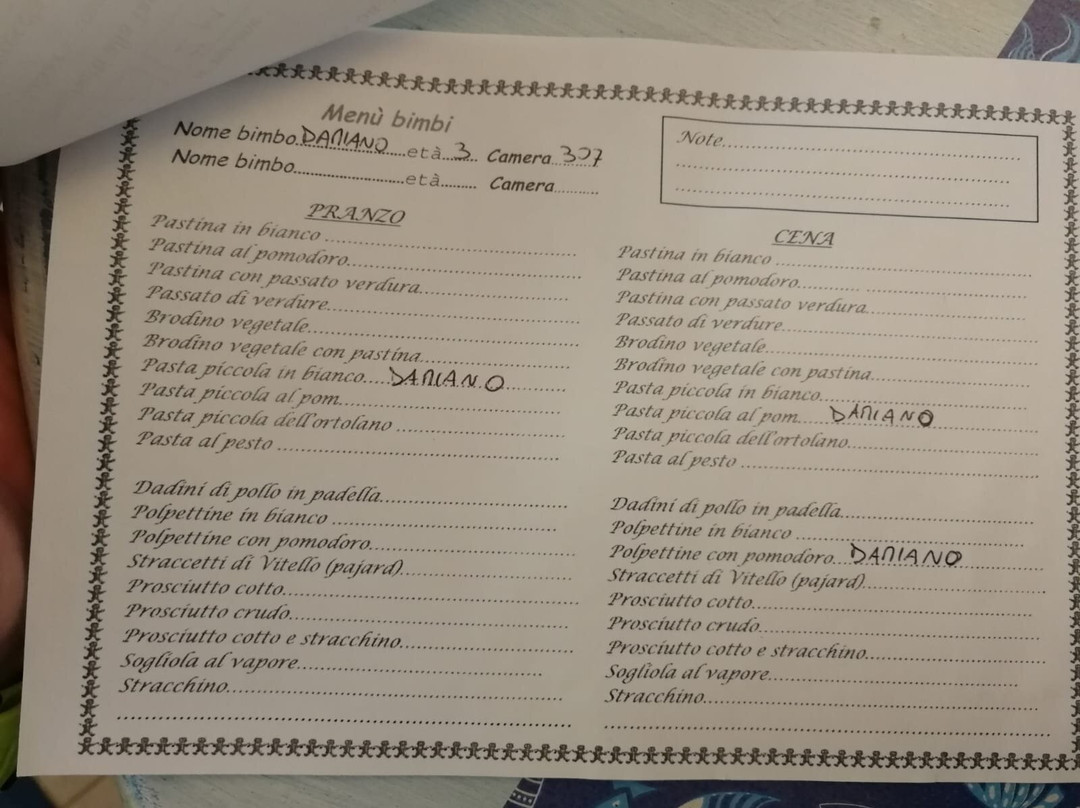 Menù bimbi
Nome bimbo DAMIANO età 3 Camera 307
Nome bimbo età Camera
Note
PRANZO
Pastina in bianco
Pastina al pomodoro
Pastina con passato verdura
Passato di verdure
Brodino vegetale
Brodino vegetale con pastina
Pasta piccola in bianco DAMIANO
Pasta piccola al pom
Pasta piccola dell'ortolano
Pasta al pesto
Dadini di pollo in padella
Polpettine in bianco
Polpettine con pomodoro
Straccetti di Vitello (pajard)
Prosciutto cotto
Prosciutto crudo
Prosciutto cotto e stracchino
Sogliola al vapore
Stracchino
CENA
Pastina in bianco
Pastina al pomodoro
Pastina con passato verdura
Passato di verdure
Brodino vegetale
Brodino vegetale con pastina
Pasta piccola in bianco
Pasta piccola al pom DAMIANO
Pasta piccola dell'ortolano
Pasta al pesto
Dadini di pollo in padella
Polpettine in bianco
Polpettine con pomodoro DAMIANO
Straccetti di Vitello (pajard)
Prosciutto cotto
Prosciutto crudo
Prosciutto cotto e stracchino
Sogliola al vapore
Stracchino